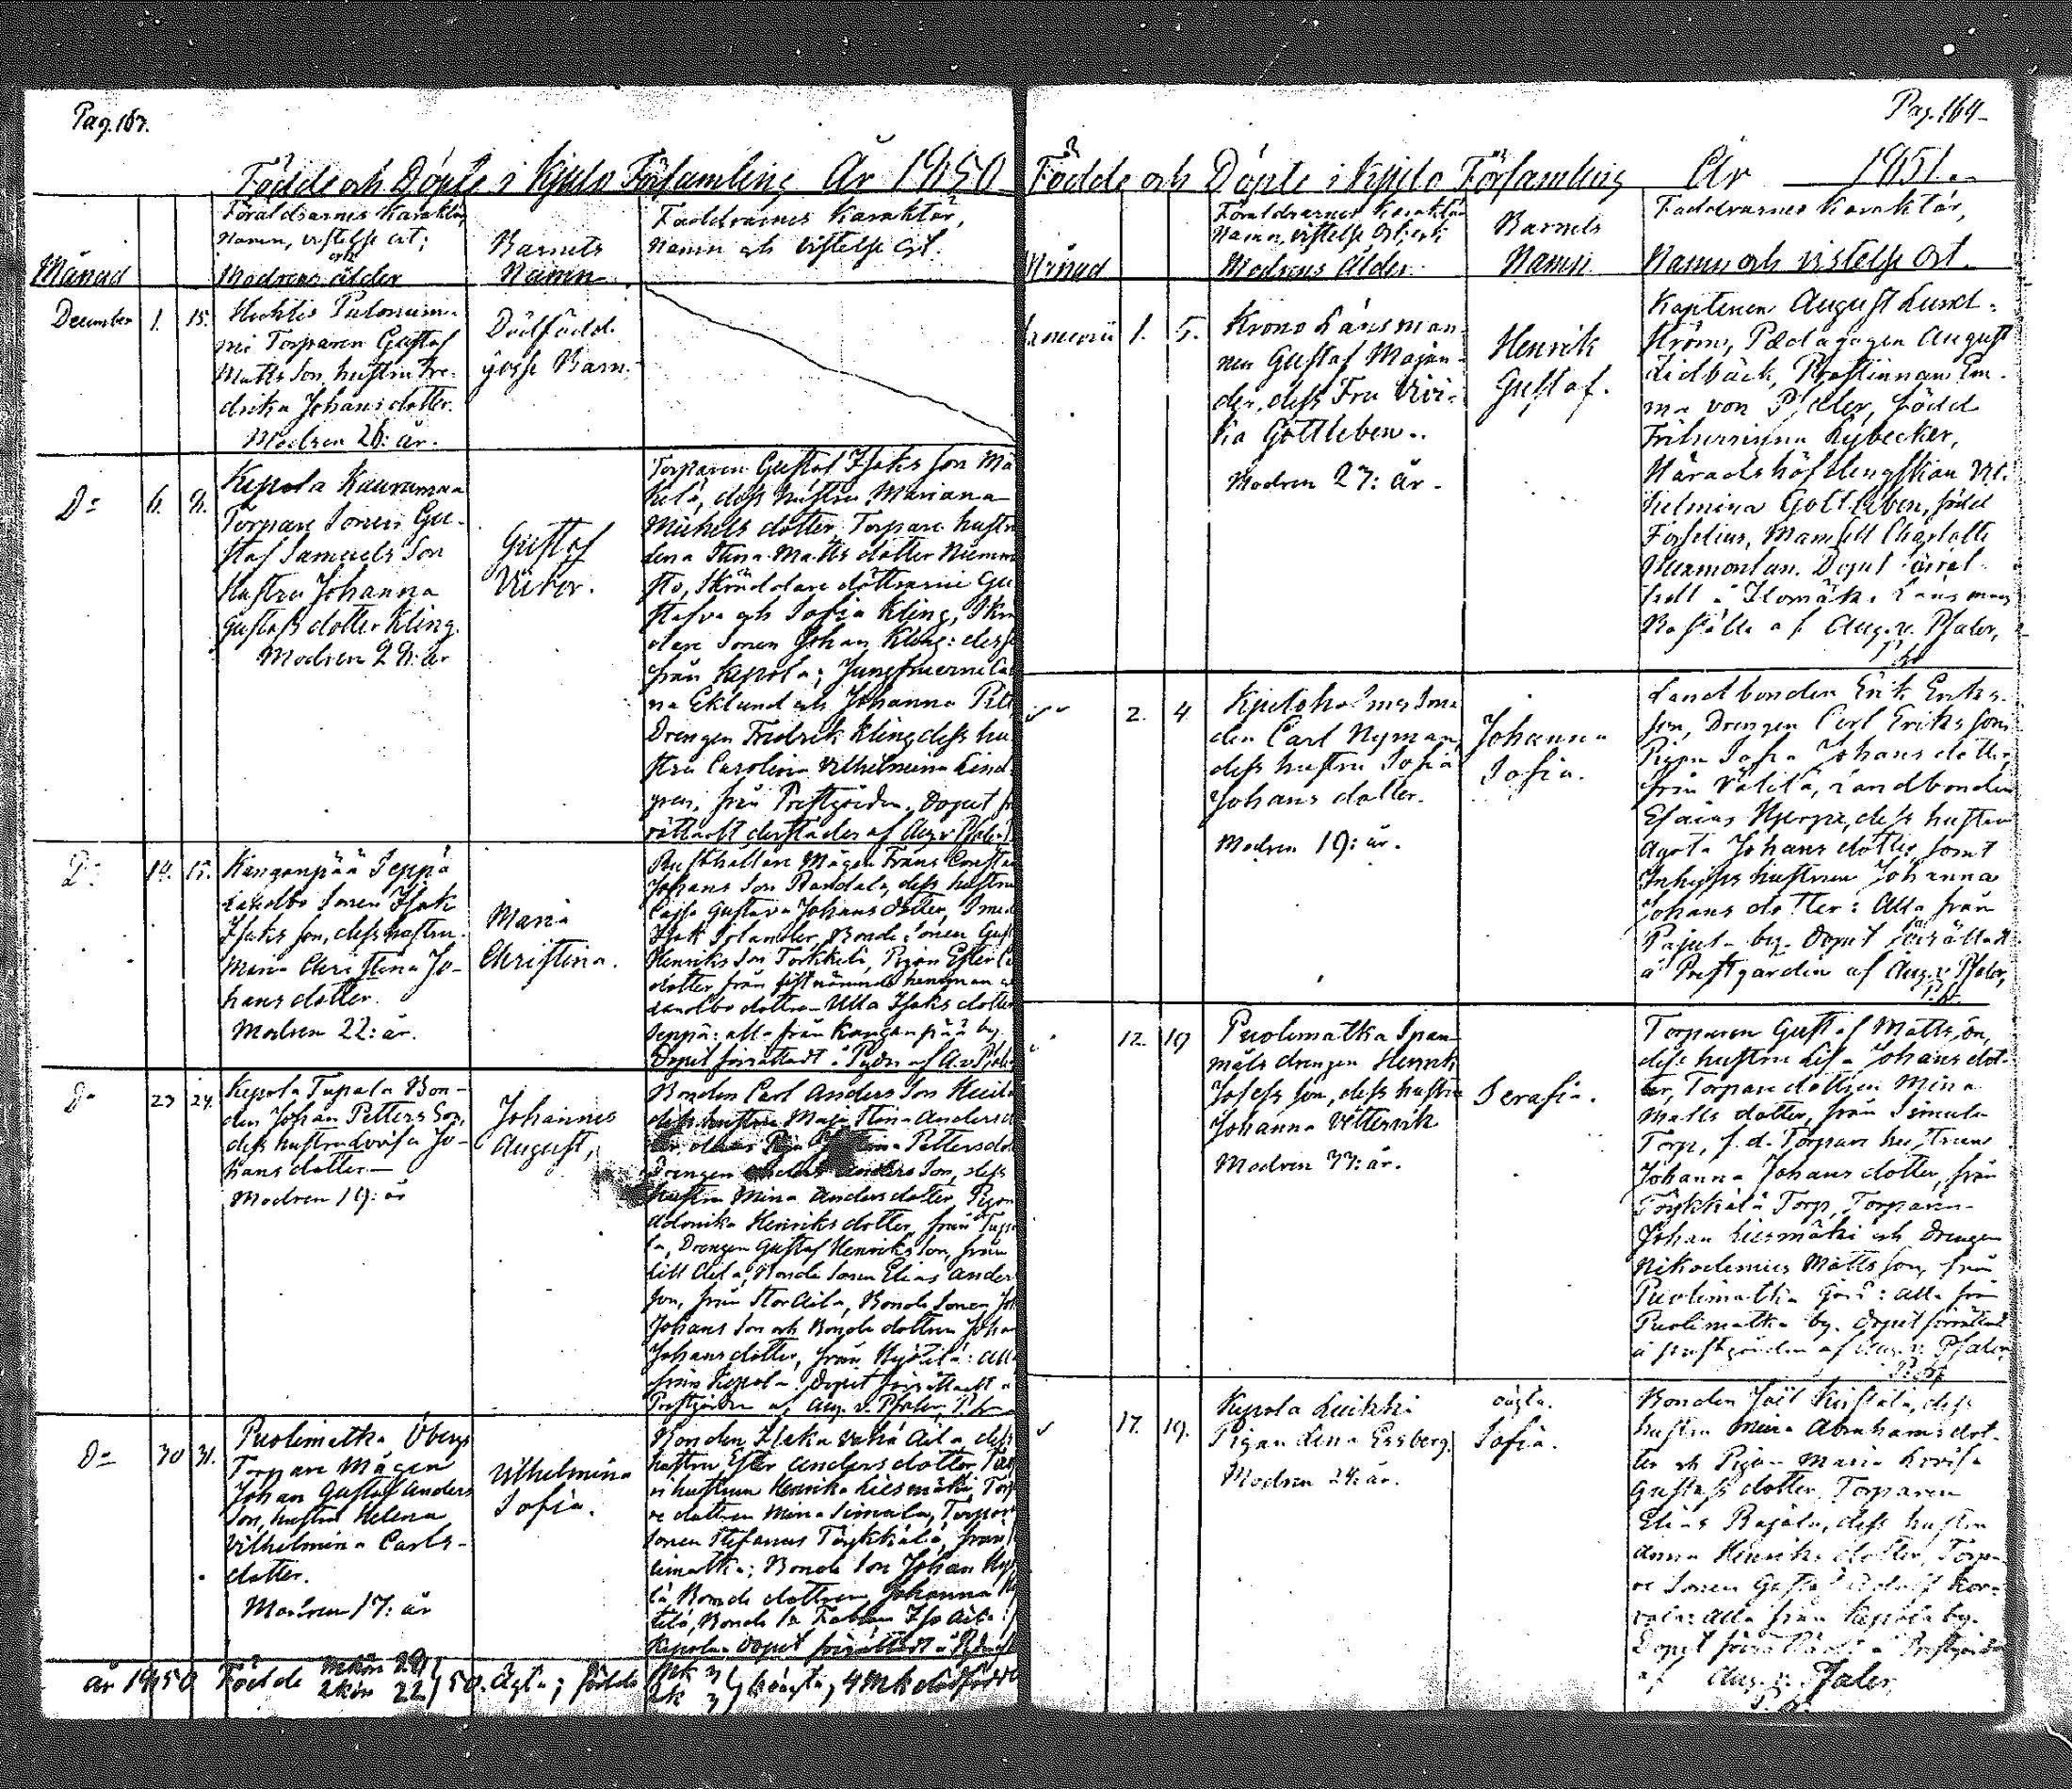 Pag. 163.
Födde och Döpte i Kjulo Församling År 1850
Månad
Föräldrarnes Karaktär,
Namn, vistelse ort;
och
Modrens ålder
Barnets
Namn
Faddrarnes Karaktär,
Namn och vistelse ort.
December 1. 15.
Torparen Gustaf
Matts Son, hustru Fre-
drika Johans dotter.
Modren 26: år.
Dödfödd
gosse Barn.
D:o 6. 8.
Kepola Kauramaa
Torpare Sonen Gu-
staf Samuels Son
Hustru Johanna
Gustafs dotter Kling.
Modren 28: år
Gustaf
Victor.
Torparen Gustaf Isaks Son Mä
kelä, dess hustru Mariana
Michels dotter, Torpare hustru
Lena Stina Matts dotter
sto, Skräddare döttrarne Gu
stafva och Sofia Kling, Skrä
dare Sonen Johan Kling:
från Kepola; Jungfruerne
na Eklund och Johanna
Drengen Fredrik Kling dess hu
stru Carolina Vilhelmina Lind
gren, från Prestgården. Dopet
rättadt derstädes af Aug. v. Pfaler
D:o 14. 15.
Kanganpää Seppä
Landbo Sonen Isak
Isaks Son, dess hustru
Maria Christina Jo-
hans dotter.
Modren 22: år.
Maria
Christina.
Rusthållare Mågen Frans
Johans Son Randala, dess hustru
Cajsa Gustava Johans dotter,
Isak Bonde Sonen
Henriks Son Torkkeli, Pigan Ester
dotter, från
Landbo dottren Ulla Isaks dotter
Seppä: alla från Kanganpää by.
Dopet förrättadt
D:o 23 24.
Kepola Tupala Bon-
den Johan Petters Son,
dess hustru Lovisa Jo-
hans dotter
Modren 19: år
Johannes
August,
Bonden Carl Anders Son
dess hustru Maja Stina Anders
Petters
Drengen Anders Son, dess
hustru Mina Anders dotter,
Henriks dotter, från
la, Drengen Gustaf Henriks Son, från
Lill Aila, Bonde Sonen Elias Anders
Son, från Stor Aila, Bonde Sonen
Johans Son och Bonde dottren
Johans dotter, från
från Kepola. Dopet förrättadt
Prestgården af Aug. v. Pfaler,
D:o 30 31.
Puolimatka
Torpare Mågen
Johan Gustaf Anders
Son, hustru Helena
Vilhelmina Carls-
dotter.
Modren 17: år
Vilhelmina
Sofia.
Bonden Isak Vähä Aila, dess
hustru Ester Anders dotter,
hustrun Henrika Liesmäki,
re dottren Mina Simula,
Sonen Stefanus Törkkälä, från
limatka; Bonde Son Johan
Bonde dottren Johanna
Bonde Fabian Iso Aila:
Kepola. Dopet förrättadt
År 1850 Födde mkön 28 qkön 22 50. Ägta; födde Mk 3 Qk 3 oägta, 4 Mk dödfödde
Pag. 164
Födde och Döpte i Kjulo Församling År 1851.
Månad
Föräldrarnes Karaktär
Namn, vistelse Ort, och
Modrens Ålder.
Barnets
Namn
Faddrarnes Karaktär,
Namn och vistelse Ort.
Januarii 1. 5.
Krono Länsman-
nen Gustaf Majan-
der, dess Fru Vivi-
ka Gottleben.
Modren 27: år.
Henrik
Gustaf.
Kaptenen August Lund-
ström, Pædagogen August
Lidbäck, Prostinnan Em-
ma von Pfaler, född
Friherrinna Lybecker,
Häradshöfdingskan Vil-
helmina Gottleben, född
Forselius, Mamsell Charlotte
Mermontan. Dopet förrät-
tadt å Ilomäki Länsmans
Boställe af Aug. v. Pfaler,
2. 4
Kjuloholms Sme-
den Carl Nyman,
dess hustru Sofia
Johans dotter.
Modren 19: år.
Johanna
Sofia.
Landbonden Erik Eriks
Son, Drengen Carl Eriks Son
Pigan Sofia Johans dotter,
från Välilä, Landbonden
Esaias Hjerpe, dess hustru
Agata Johans dotter, samt
Inhyses hustrun Johanna
Johans dotter: Alla från
Pajula by. Dopet förrättadt
å Prestgården af Aug. v. Pfaler,
12. 19
Puolimatka Span-
måls drengen Henrik
Josefs Son, dess hustru
Johanna Vettervik
Modren 33: år.
Serafia.
Torparen Gustaf Matts Son,
dess hustru Lisa Johans dot-
ter, Torpare dottren Mina
Matts dotter, från Simula
Torp, f. d. Torpare hustrun
Johanna Johans dotter, från
Törkkälä Torp, Torparen
Johan Liesmäki och Drengen
Nikodemus Matts Son, från
Puolimatka Gård: alla från
Puolimatka by. Dopet förrättadt
å prestgården af Aug. v. Pfaler,
17. 19.
Kepola Luikki
Pigan Lena Essberg.
Modren 24: år.
oägta.
Sofia.
Bonden Joël dess
hustru Mina Abrahams dot-
ter och Pigan Maria Lovisa
Gustafs dotter, Torparen
Elias Rajala, dess hustru
Anna Henriks dotter, Torpa-
re Sonen Gustaf Adolf Kor-
vala: alla från Kepola by.
Dopet förrättadt å Prestgården
af Aug. v. Pfaler,